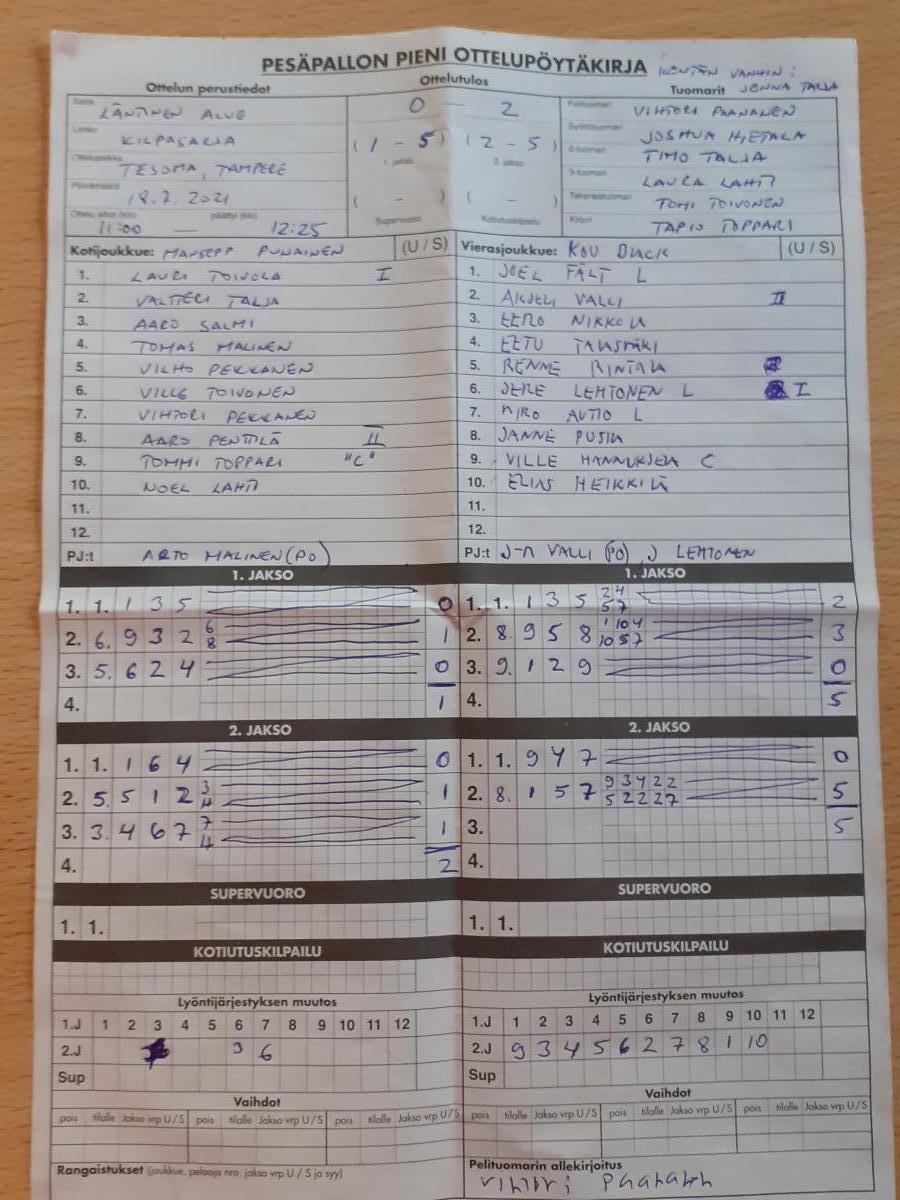 PESÄPALLON PIENI OTTELUPÖYTÄKIRJA
KENTÄN VANHIN:
JONNA TALJA
Ottelun perustiedot Ottelutulos Tuomarit
Sarja LÄNTINEN ALUE
0 - 2
Pelituomari VIHTORI PAANANEN
Lohko KILPASARJA
(1 - 5) (2 - 5)
1. jakso 2. jakso
Syöttötuomari JOSHUA HIETALA
Ottelupaikka TESOMA, TAMPERE
2-tuomari TIMO TALJA
Päivämäärä 18.7.2021
( - ) ( - )
3-tuomari LAURA LAHTI
Takarajatuomari TOMI TOIVONEN
Ottelu alkoi (klo) päättyi (klo)
11:00 — 12:25
Supervuoro Kotiutuskilpailu
Kirjuri TAPIO TOPPARI
Kotijoukkue: MANSEPP PUNAINEN (U / S) Vierasjoukkue: KOU BLACK (U / S)
1. LAURI TOIVOLA I 1. JOEL FÄLT L
2. VALTTERI TALJA 2. AKSELI VALLI II
3. AARO SALMI 3. EERO NIKKOLA
4. TOMAS MALINEN 4. EETU
5. VILHO PEKKANEN 5. RENNE RINTALA
6. VILLE TOIVONEN 6. JERE LEHTONEN L I
7. VIHTORI PEKKANEN 7. NIRO AUTIO L
8. AARO PENTTILÄ II 8. JANNE PUSILA
9. TOMMI TOPPARI "C" 9. VILLE HANNUKSELA C
10. NOEL LAHTI 10. ELIAS HEIKKILÄ
11. 11.
12. 12.
PJ:t ARTO MALINEN (PO) PJ:t J-M VALLI (PO), J LEHTONEN
1. JAKSO 1. JAKSO
1. 1. 1 3 5 0 1. 1. 1 3 5 2 4 5 7 2
2. 6. 9 3 2 6 8 1 2. 8. 9 5 8 1 10 4 10 5 7 3
3. 5. 6 2 4 0 3. 9. 1 2 9 0
4. 1 4. 5
2. JAKSO 2. JAKSO
1. 1. 1 6 4 0 1. 1. 9 4 7 0
2. 5. 5 1 2 3 4 1 2. 8. 1 5 7 9 3 4 2 2 5 2 2 2 7 5
3. 3. 4 6 7 7 4 1 3. 5
4. 2 4.
SUPERVUORO SUPERVUORO
1. 1. 1. 1.
KOTIUTUSKILPAILU KOTIUTUSKILPAILU
Lyöntijärjestyksen muutos Lyöntijärjestyksen muutos
1.J 1 2 3 4 5 6 7 8 9 10 11 12 1.J 1 2 3 4 5 6 7 8 9 10 11 12
2.J 3 6 2.J 9 3 4 5 6 2 7 8 1 10
Sup Sup
Vaihdot Vaihdot
pois tilalle Jakso vrp U / S pois tilalle Jakso vrp U / S pois tilalle Jakso vrp U / S pois tilalle Jakso vrp U / S pois tilalle Jakso vrp U / S pois tilalle Jakso vrp U / S
Rangaistukset (joukkue, pelaaja nro, jakso vrp U / S ja syy) Pelituomarin allekirjoitus
Vihtori Paananen